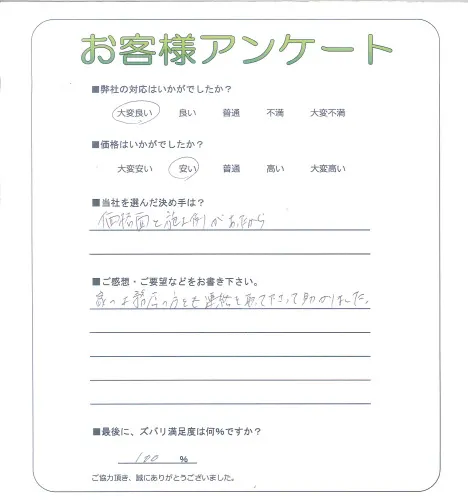 お客様アンケート
■弊社の対応はいかがでしたか？
大変良い 良い 普通 不満 大変不満
■価格はいかがでしたか？
大変安い 安い 普通 高い 大変高い
■当社を選んだ決め手は？
価格面と施工例があたから
■ご感想・ご要望などをお書き下さい。
家の工務店の方とも連絡を取って下さって助かりました。
■最後に、ズバリ満足度は何％ですか？
100 ％
ご協力頂き、誠にありがとうございました。